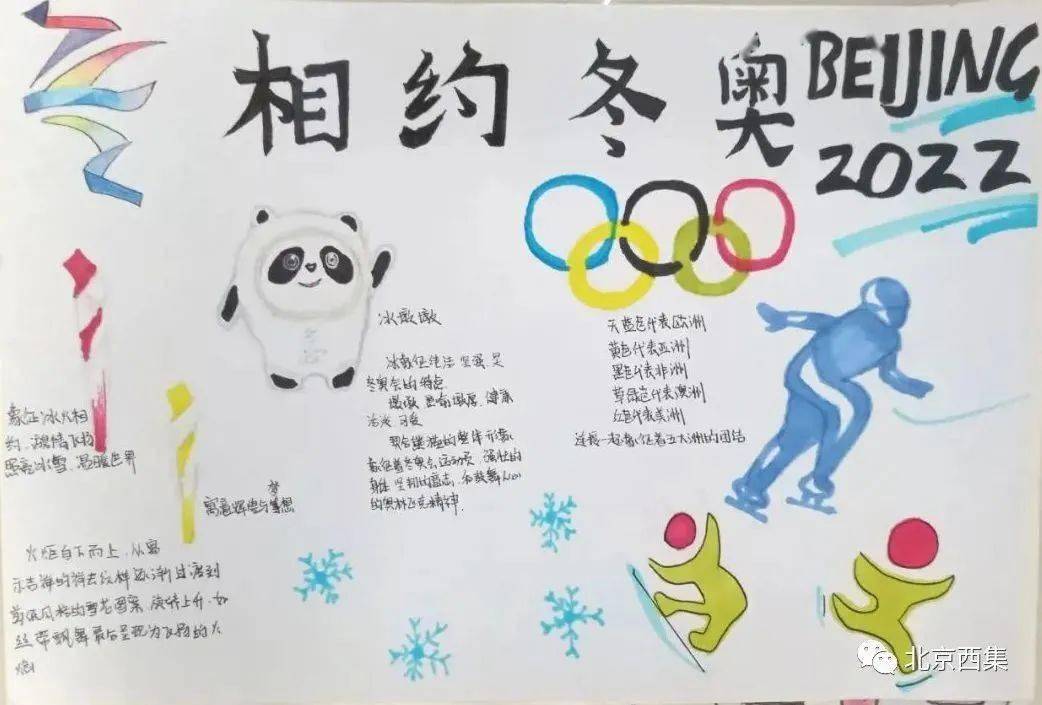 相约冬奥
BEIJING
2022
冰墩墩
冰象征纯洁 坚强,是
冬奥会的特点
墩墩 意喻敦厚、健康
活泼 可爱
契合熊猫的整体形象
象征着冬奥会运动员 强壮的
身体 坚韧的意志, 和鼓舞人心
的奥林匹克精神.
天蓝色代表欧洲
黄色代表亚洲
黑色代表非洲
草绿色代表澳洲
红色代表美洲
连接一起象征着五大洲的团结
象征冰火相
约, 激情飞扬
照亮冰雪, 温暖世界
寓意辉煌与梦想
火炬自下而上, 从寓
示吉祥的祥云纹样逐渐过渡到
剪纸风格的雪花图案, 旋转上升, 如
丝带飘舞最后呈现为飞扬的火
焰
北京西集